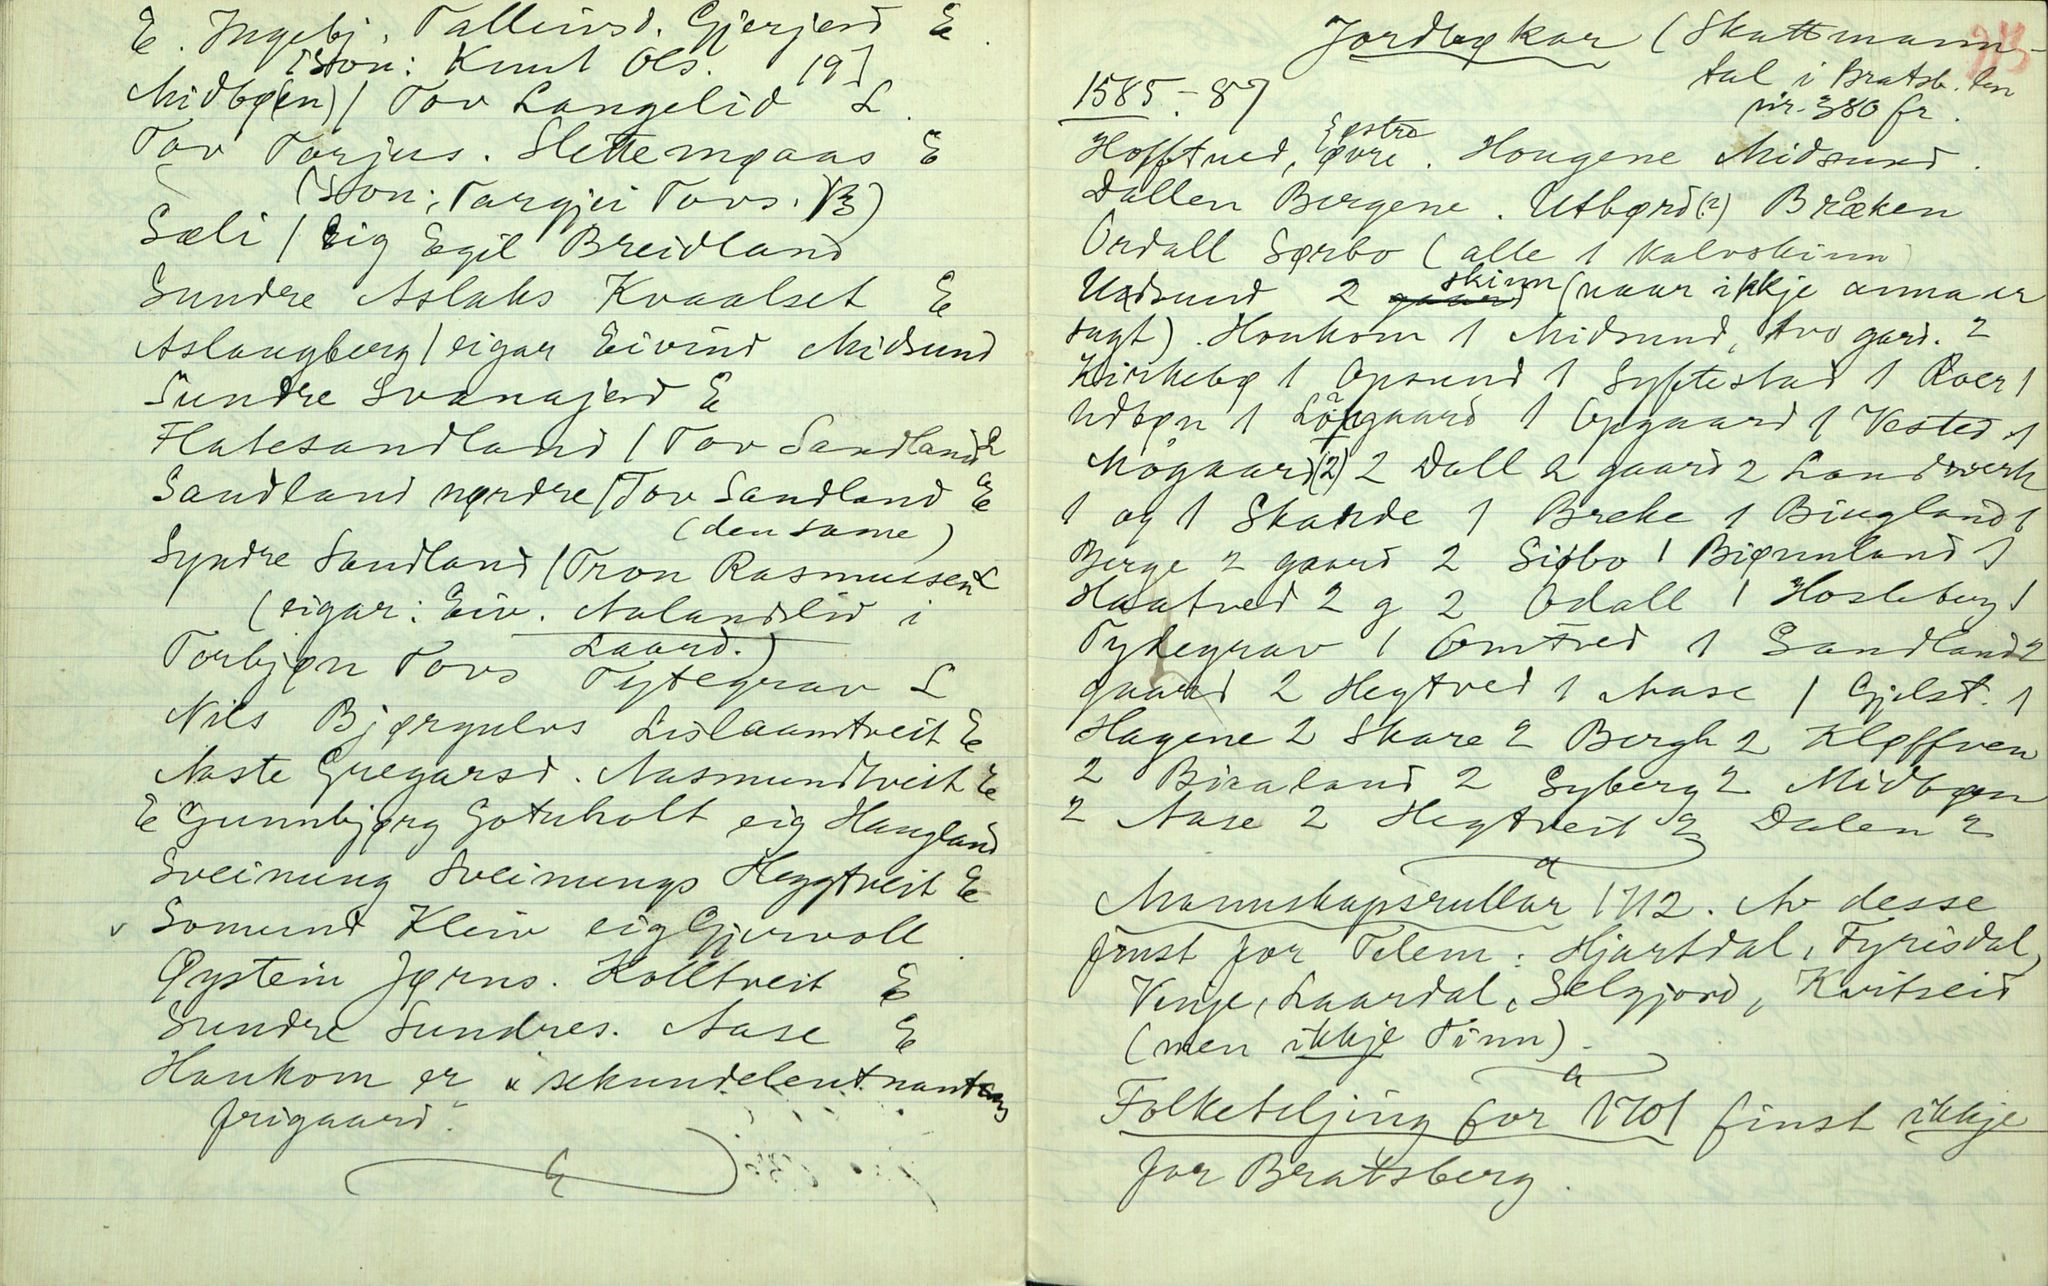 E. Ingebj. Talleivsd. Gjerjord E.
(son: Knut Ols. 19)
Midbø(en) / Tov Langelid L.
Tov Torjus. Slettemøaas E
(son: Targjei Tovs. 13)
Sæli / eig Egil Breidland
Sundre Aslaks Kvaalset E
Aslaugberg / eigar Eivind Midsund
Sundre Svanajord E
Flatesandland / Tov Sandland L
Sandland nørdre / Tov Sandland E
(den same)
Syndre Sandland / Tron Rasmussen L
(eigar: Eiv. Aalandslid i
Laard.)
Torbjøn Tovs Tytegrav L
Nils Bjørgulvs Lislaamtveit E
Aaste Gregarsd. Aasmundtveit E
E Gunnbjørg Gotuholt eig Haugland
Sveinung Sveinungs Heggtveit E
v Somund Kleiv eig Gjervoll
Øystein Jørns. Kolltveit E
Sundre Sundres. Aase E
Haukom er "sekundeleutnantens
frigaard."
Jordbøkar (Skattmann-
213
tal i Bratsb. len
nr. 380 fr.
1585-87
Hofftued, østre øvre. Hougene Midsund.
Dallen Bergene. Utbørd(?) Bræken
Ordall Sørbo (alle 1 kalvskinn)
Utsund 2 skinn (naar ikkje anna er
sagt). Houkom 1 Midsund, tvo gard. 2
Kirkebø 1 Opsund 1 Syftestad 1 Roer 1
Udbøn 1 Löngaard 1 Opgaard 1 Vested 1
Mögaard(2) 2 Dall 2 gaard 2 Landverk
1 og 1 Skarde 1 Breke 1 Bingland 1
Berge 2 gaard 2 Siøbo 1 Biønnland 1
Haatved 2 g 2 Odall 1 Hosleberg 1
Tydegrav 1 Omtved 1 Sandland 2
gaard 2 Hegtved 1 Aase 1 Gjelst. 1
Hagene 2 Skare 2 Bergh 2 Kløffven
2 Bixaland 2 Syberg 2 Midbøen
2 Aase 2 Hegtveit 2 Dalen 2
Mannskapsrullar 1712. Av desse
finst for Telem: Hjartdal, Fyrisdal,
Vinje, Laardal, Selgjord, Kvitseid
(men ikkje Tinn).
Folketeljing for 1701 finst ikkje
for Bratsberg.